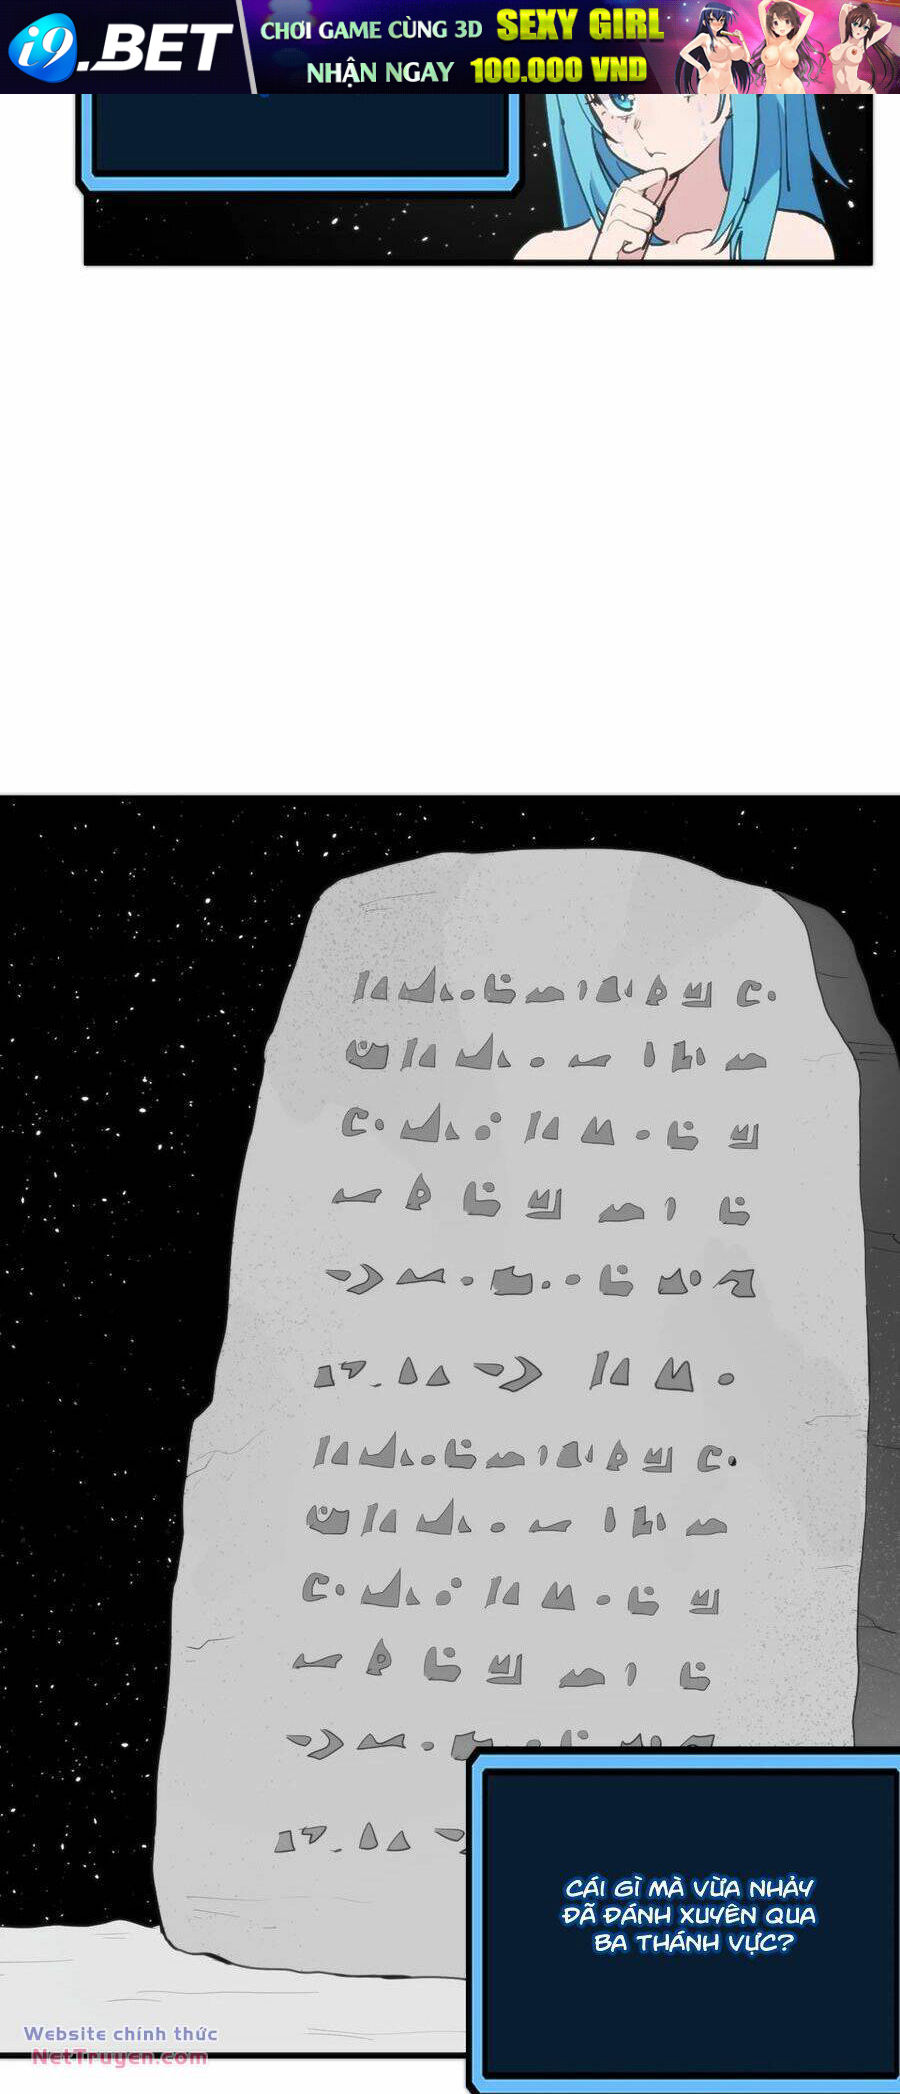 i9.BET
CHƠI GAME CÙNG 3D SEXY GIRL
NHẬN NGAY 100.000 VND
CÁI GÌ MÀ VỪA NHẢY
ĐÃ ĐÁNH XUYÊN QUA
BA THÁNH VỰC?
Website chính thức
NetTruyen.com